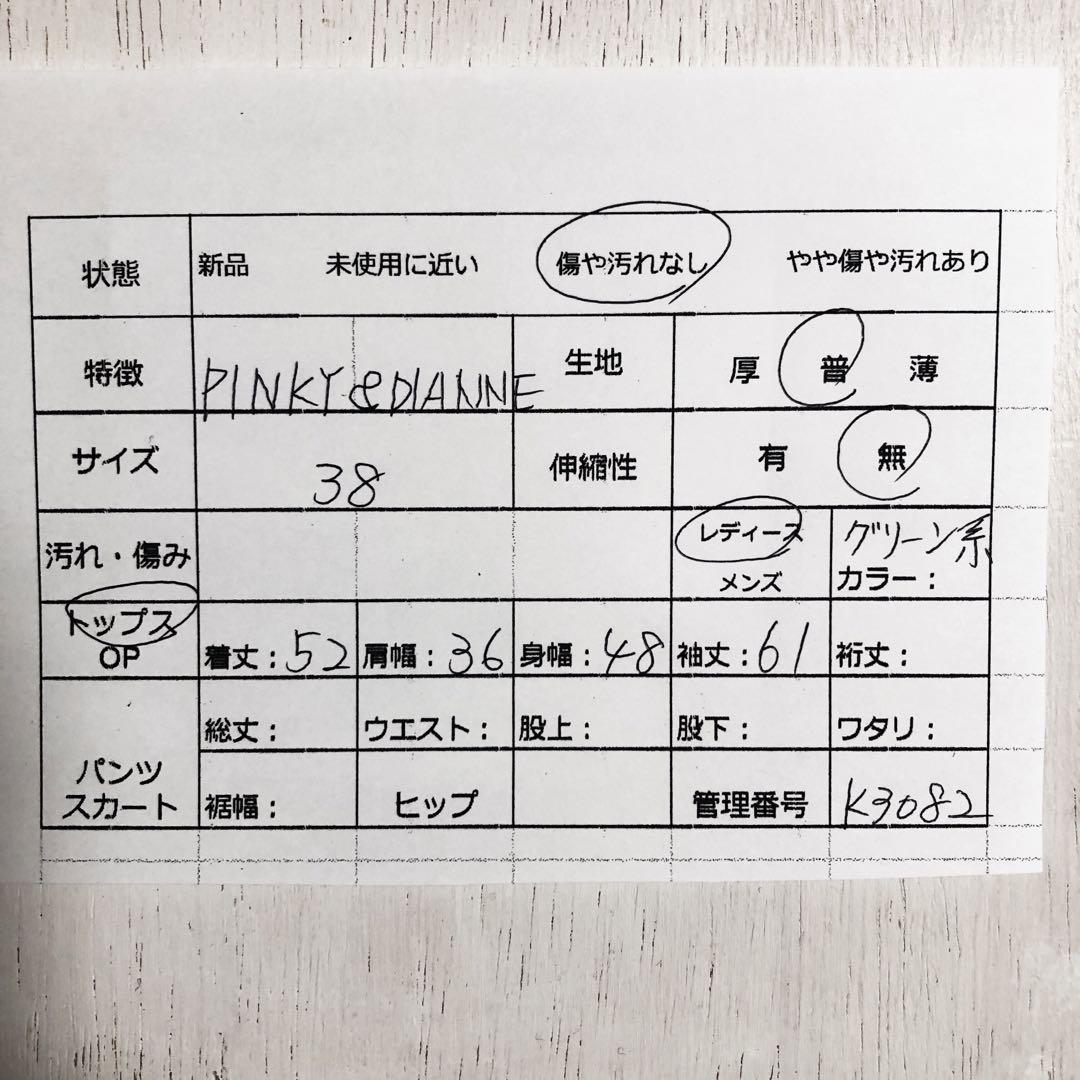 状態 新品 未使用に近い 傷や汚れなし やや傷や汚れあり
特徴 PINKY&DIANNE 生地 厚 普 薄
サイズ 38 伸縮性 有 無
汚れ・傷み レディース グリーン系
メンズ カラー:
トップス
OP 着丈:52 肩幅:36 身幅:48 袖丈:61 裄丈:
総丈: ウエスト: 股上: 股下: ワタリ:
パンツ
スカート 裾幅: ヒップ 管理番号 K3082